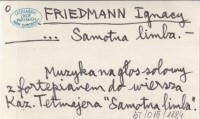 FRIEDMANN Ignacy
... Samotna limba. —
Muzyka na głos solowy
z fortepianem do wiersza
Kaz. Tetmajera "Samotna limba".